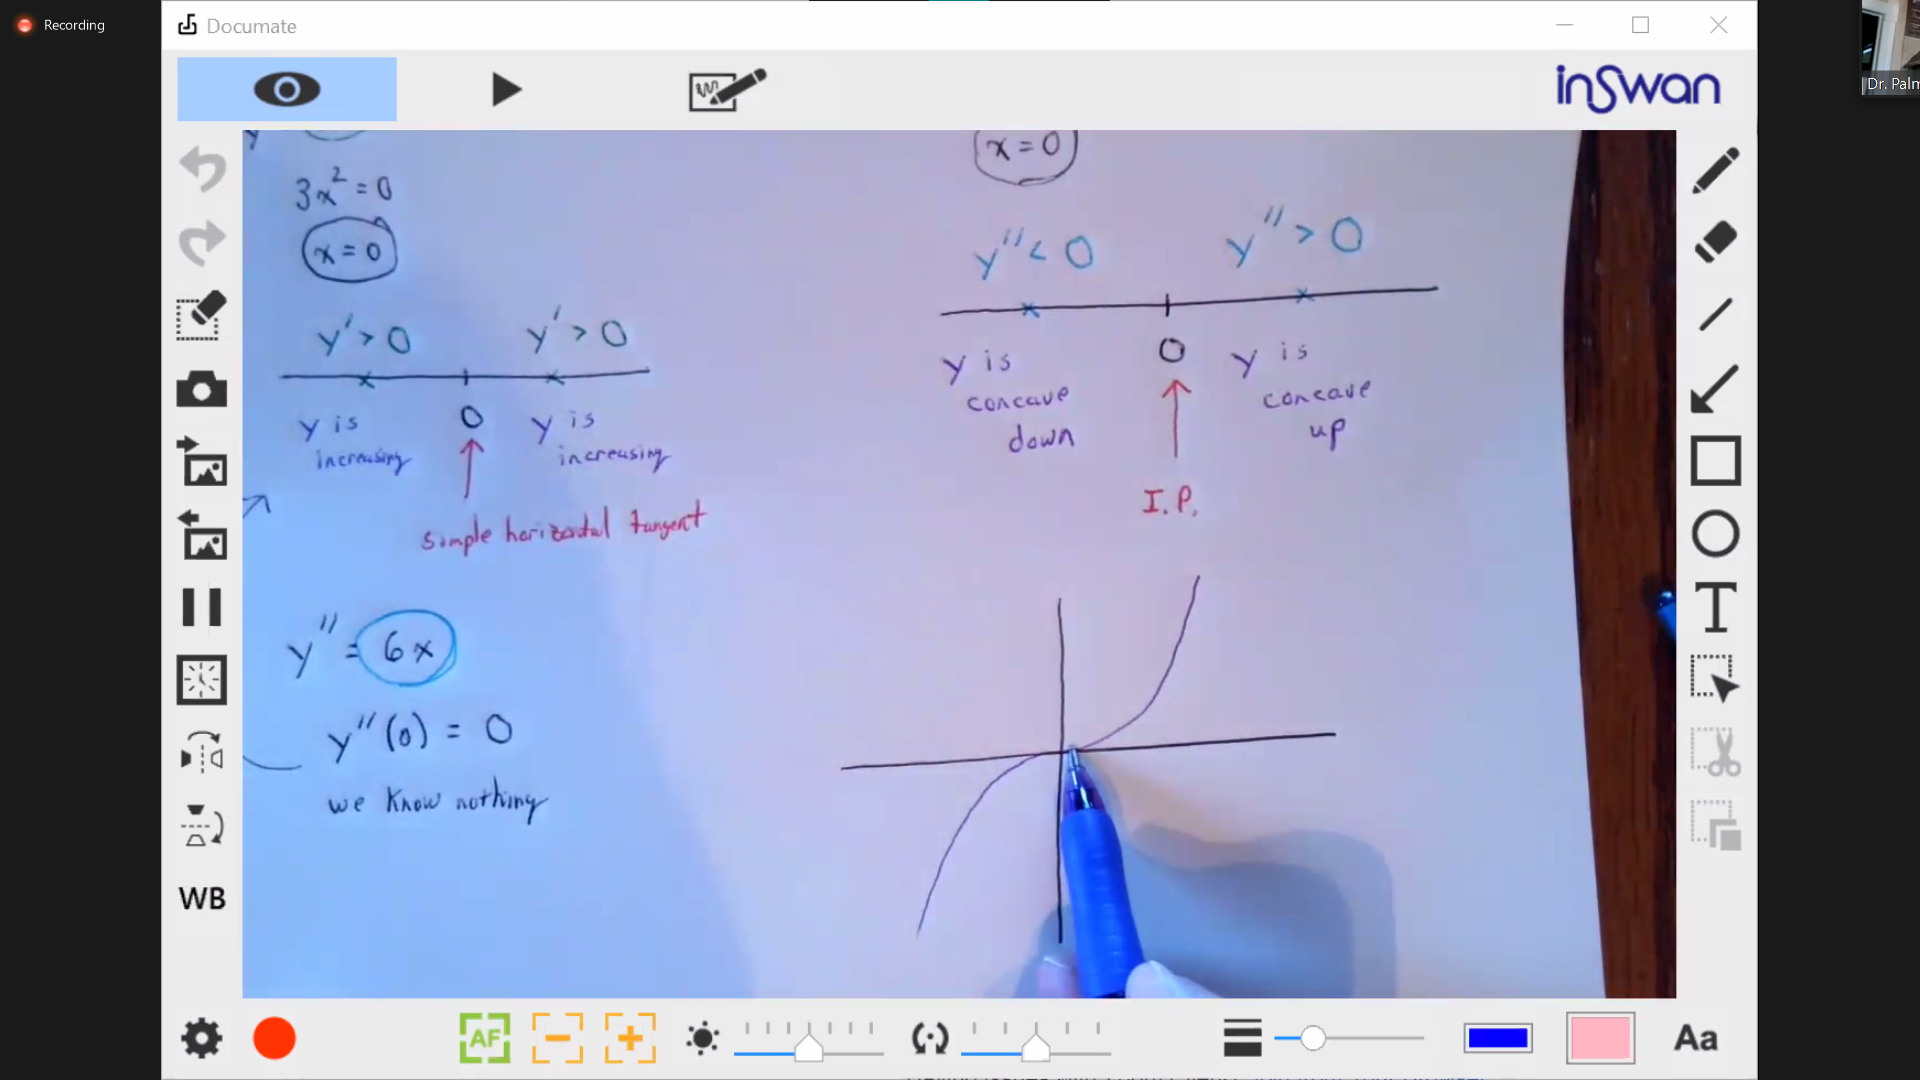 Recording
Documate
inswan
Dr. Palm
y
3x² = 0
x = 0
y' > 0 y' > 0
0
y is increasing
y is increasing
simple horizontal tangent
y'' = 6x
y''(0) = 0
we know nothing
x = 0
y'' < 0 y'' > 0
0
y is concave down
y is concave up
I.P.
WB
T
AF
Aa